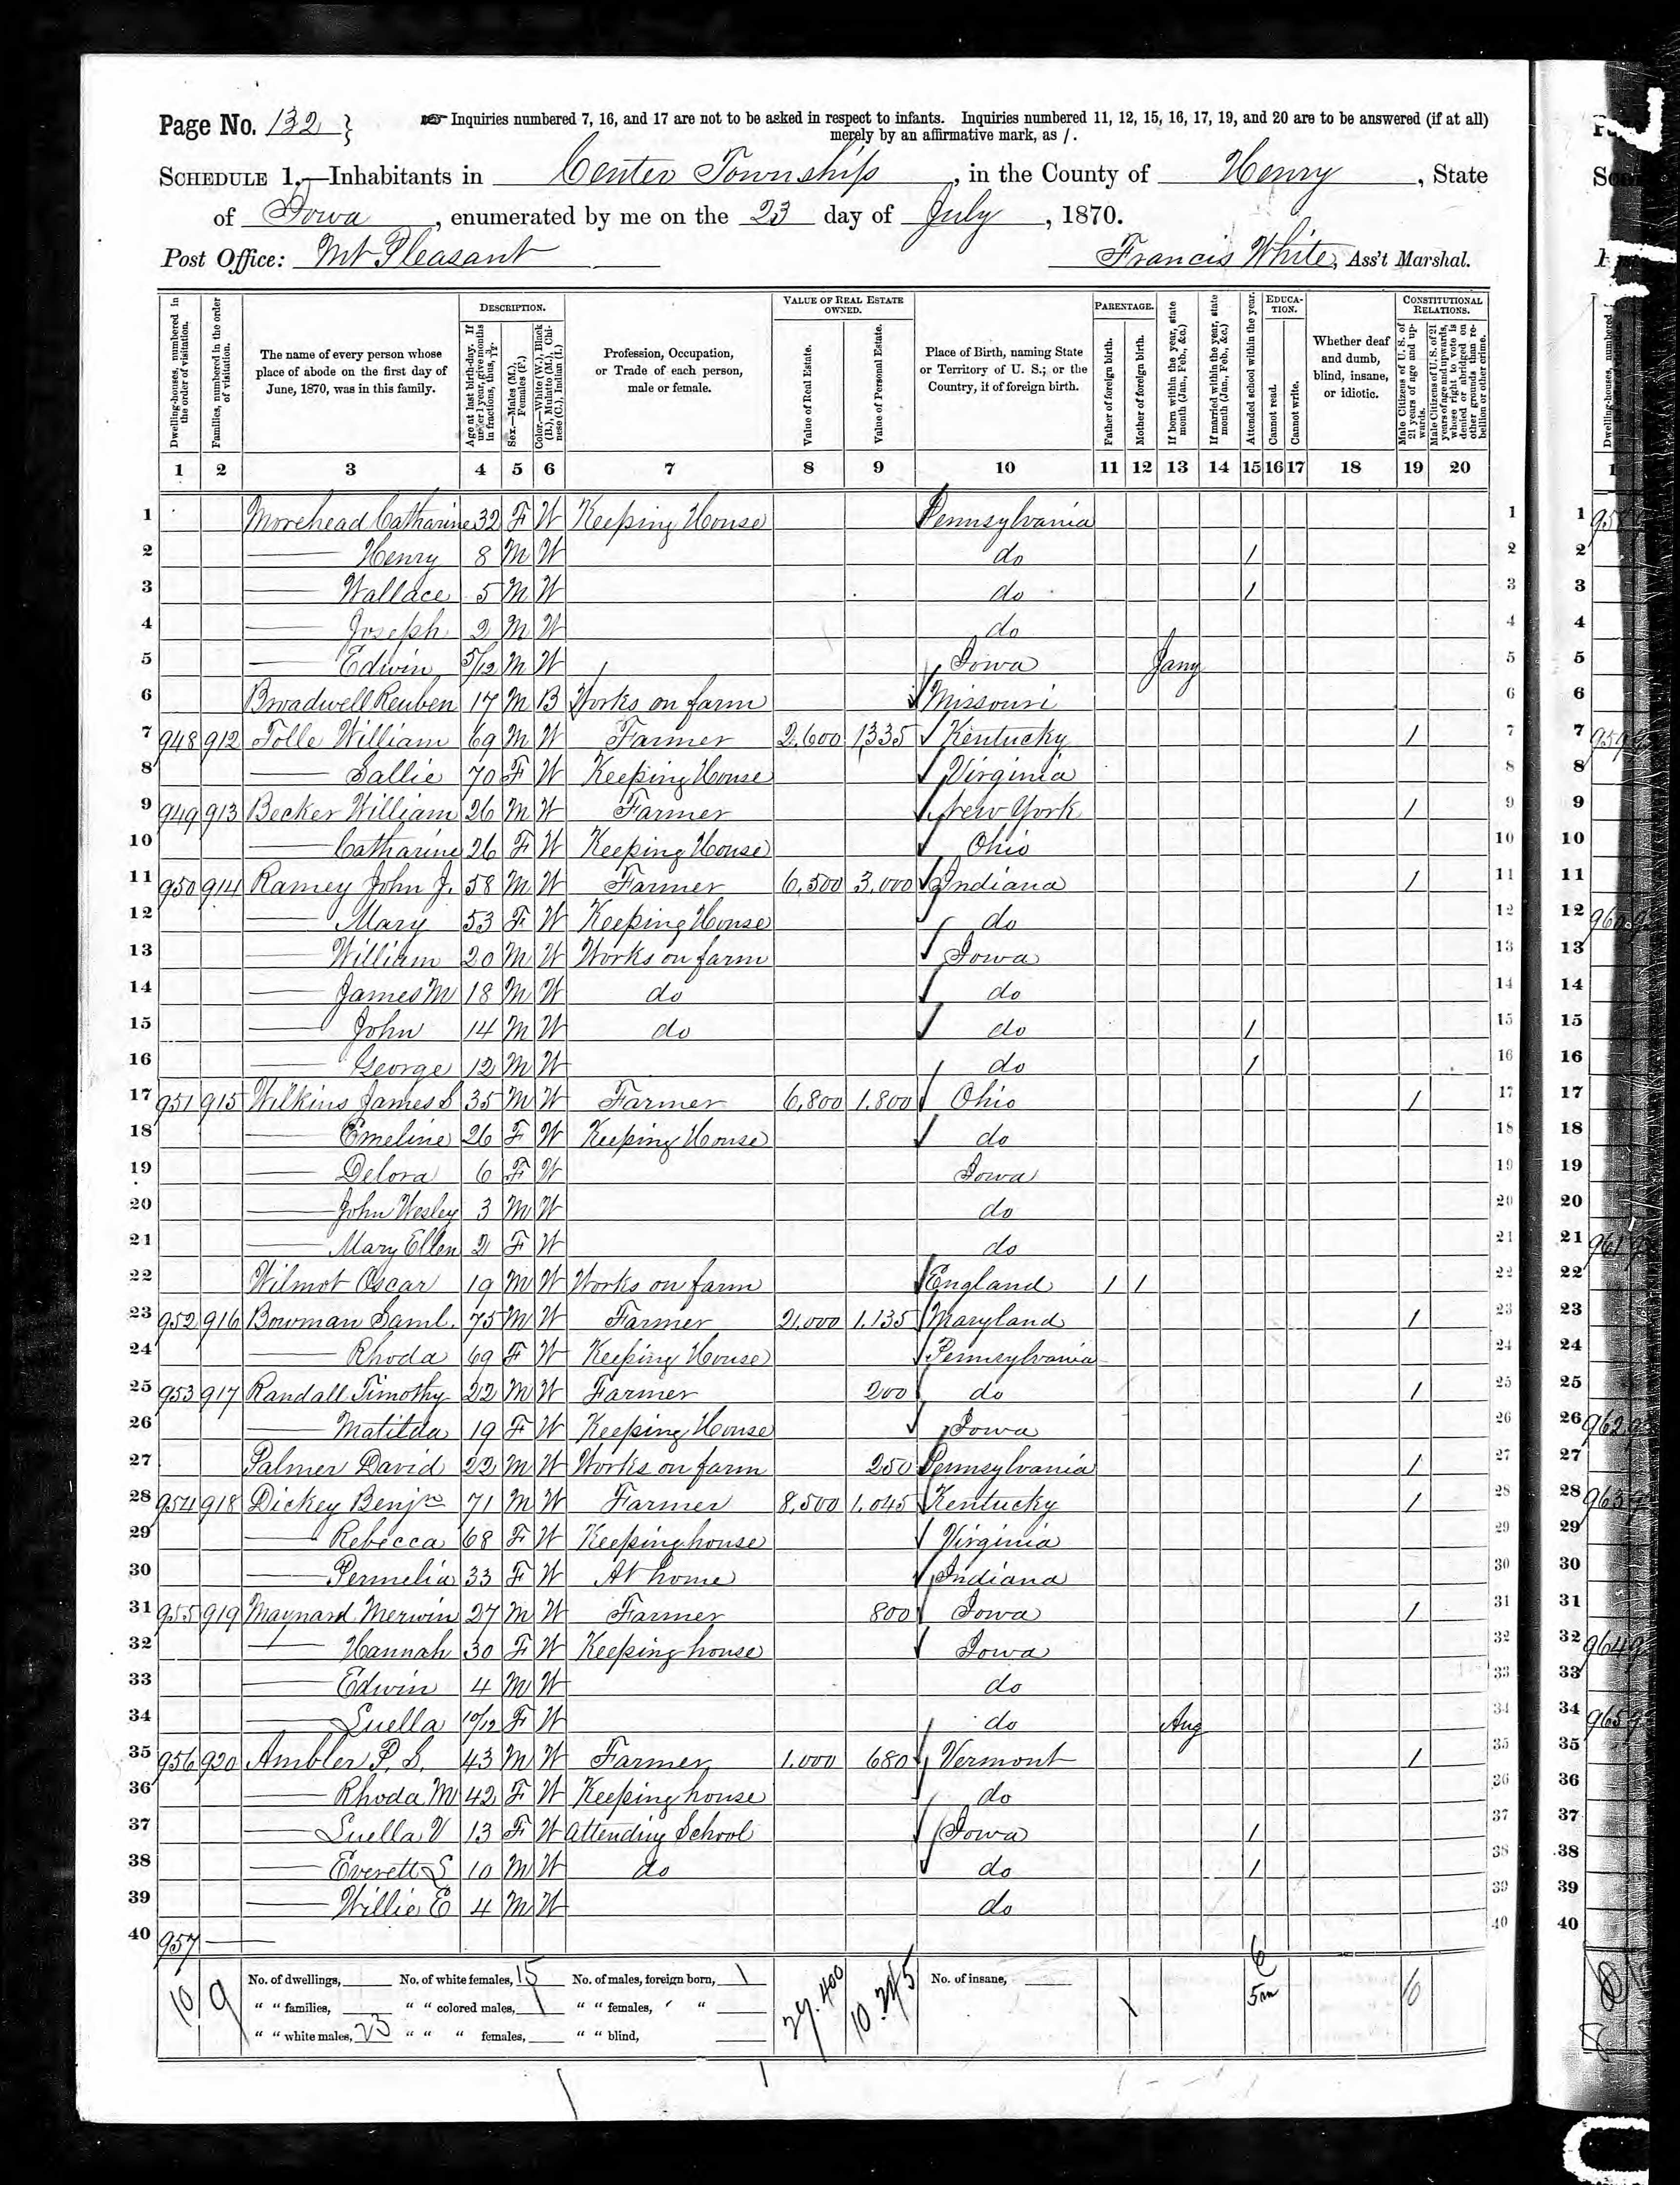 Page No. 132 } Inquiries numbered 7, 16, and 17 are not to be asked in respect to infants. Inquiries numbered 11, 12, 15, 16, 17, 19, and 20 are to be answered (if at all)
merely by an affirmative mark, as /.
SCHEDULE 1.—Inhabitants in Center Township, in the County of Henry, State
of Iowa, enumerated by me on the 23 day of July, 1870.
Post Office: Mt Pleasant Francis White, Ass't Marshal.
Dwelling-houses, numbered in the order of visitation.
Families, numbered in the order of visitation.
The name of every person whose place of abode on the first day of June, 1870, was in this family.
DESCRIPTION.
Age at last birth-day. If under 1 year, give months in fractions, thus, 3/12.
Sex.—Males (M.), Females (F.)
Color.—White (W.), Black (B.), Mulatto (M.), Chinese (C.), Indian (I.)
Profession, Occupation, or Trade of each person, male or female.
VALUE OF REAL ESTATE OWNED.
Value of Real Estate.
Value of Personal Estate.
Place of Birth, naming State or Territory of U. S.; or the Country, if of foreign birth.
PARENTAGE.
Father of foreign birth.
Mother of foreign birth.
If born within the year, state month (Jan., Feb., &c.)
If married within the year, state month (Jan., Feb., &c.)
Attended school within the year.
EDUCATION.
Cannot read.
Cannot write.
Whether deaf and dumb, blind, insane, or idiotic.
CONSTITUTIONAL RELATIONS.
Male Citizens of U. S. of 21 years of age and upwards.
Male Citizens of U. S. of 21 years of age and upwards, whose right to vote is denied or abridged on other grounds than rebellion or other crime.
1 2 3 4 5 6 7 8 9 10 11 12 13 14 15 16 17 18 19 20
1 Morehead Catharine 32 F W Keeping House Pennsylvania 1
2 — Henry 8 M W do / 2
3 — Wallace 5 M W do / 3
4 — Joseph 2 M W do 4
5 — Edwin 5/12 M W Iowa Jany 5
6 Broadwell Reuben 17 M B Works on farm Missouri 6
7 948 912 Tolle William 69 M W Farmer 2,600 1335 Kentucky / 7
8 — Sallie 70 F W Keeping House Virginia 8
9 949 913 Becker William 26 M W Farmer New York / 9
10 — Catharine 26 F W Keeping House Ohio 10
11 950 914 Ramey John J. 58 M W Farmer 6,500 3,000 Indiana / 11
12 — Mary 53 F W Keeping House do 12
13 — William 20 M W Works on farm Iowa 13
14 — James M 18 M W do do 14
15 — John 14 M W do do / 15
16 — George 12 M W do / 16
17 951 915 Wilkins James S 35 M W Farmer 6,800 1,800 Ohio / 17
18 — Emeline 26 F W Keeping House do 18
19 — Delora 6 F W Iowa 19
20 — John Wesley 3 M W do 20
21 — Mary Ellen 2 F W do 21
22 Wilmot Oscar 19 M W Works on farm England / / 22
23 952 916 Bowman Saml. 75 M W Farmer 2,000 1,135 Maryland / 23
24 — Rhoda 69 F W Keeping House Pennsylvania 24
25 953 917 Randall Timothy 22 M W Farmer 200 do / 25
26 — Matilda 19 F W Keeping House Iowa 26
27 Palmer David 22 M W Works on farm 250 Pennsylvania / 27
28 954 918 Dickey Benjn 71 M W Farmer 8,500 1,045 Kentucky / 28
29 — Rebecca 68 F W Keeping house Virginia 29
30 — Permelia 33 F W At home Indiana 30
31 955 919 Maynard Merwin 27 M W Farmer 800 Iowa / 31
32 — Hannah 30 F W Keeping house Iowa 32
33 — Edwin 4 M W do 33
34 — Luella 10/12 F W do Aug 34
35 956 920 Ambler P. S. 43 M W Farmer 1,000 680 Vermont / 35
36 — Rhoda M 42 F W Keeping house do 36
37 — Luella V 13 F W Attending School Iowa / 37
38 — Everett S 10 M W do do / 38
39 — Willie E 4 M W do 39
40 957 — 40
10 9 No. of dwellings, No. of white females, 15 No. of males, foreign born, 1 27.400 No. of insane, 1 6 10
" " families, " " colored males, 1 " " females, " " 5m
" " white males, 23 " " " females, " " blind,